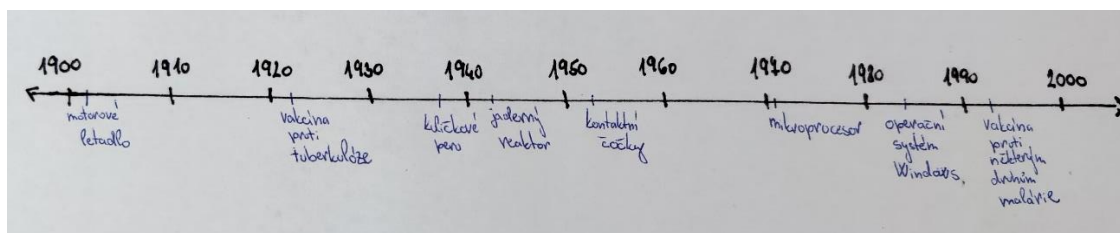 1900 1910 1920 1930 1940 1950 1960 1970 1980 1990 2000
motorové
letadlo
vakcína
proti
tuberkulóze
kuličkové
pero
jaderný
reaktor
kontaktní
čočky
mikroprocesor
operační
systém
Windows
vakcína
proti
některým
druhům
malárie